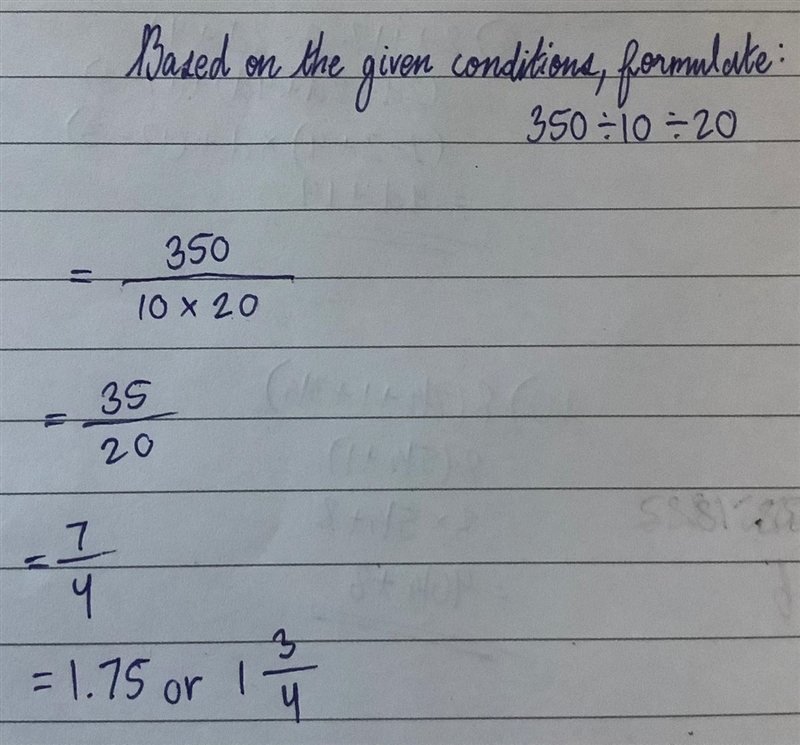 Based on the given conditions, formulate:
350 ÷ 10 ÷ 20
= 350 / 10 × 20
= 35 / 20
= 7 / 4
= 1.75 or 1 3/4